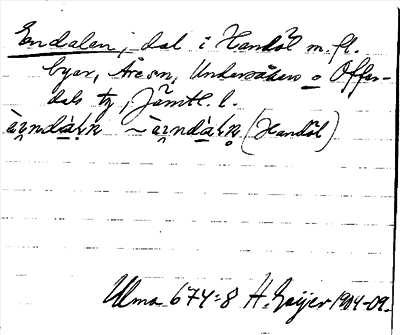 Endalen, dal i Handöl m.fl.
byar, Åre sn, Undersåkers o Offer-
dals tg, Jämtl. l.
(Handöl)
Ulma 674:8 H. Geijer 1904-09.